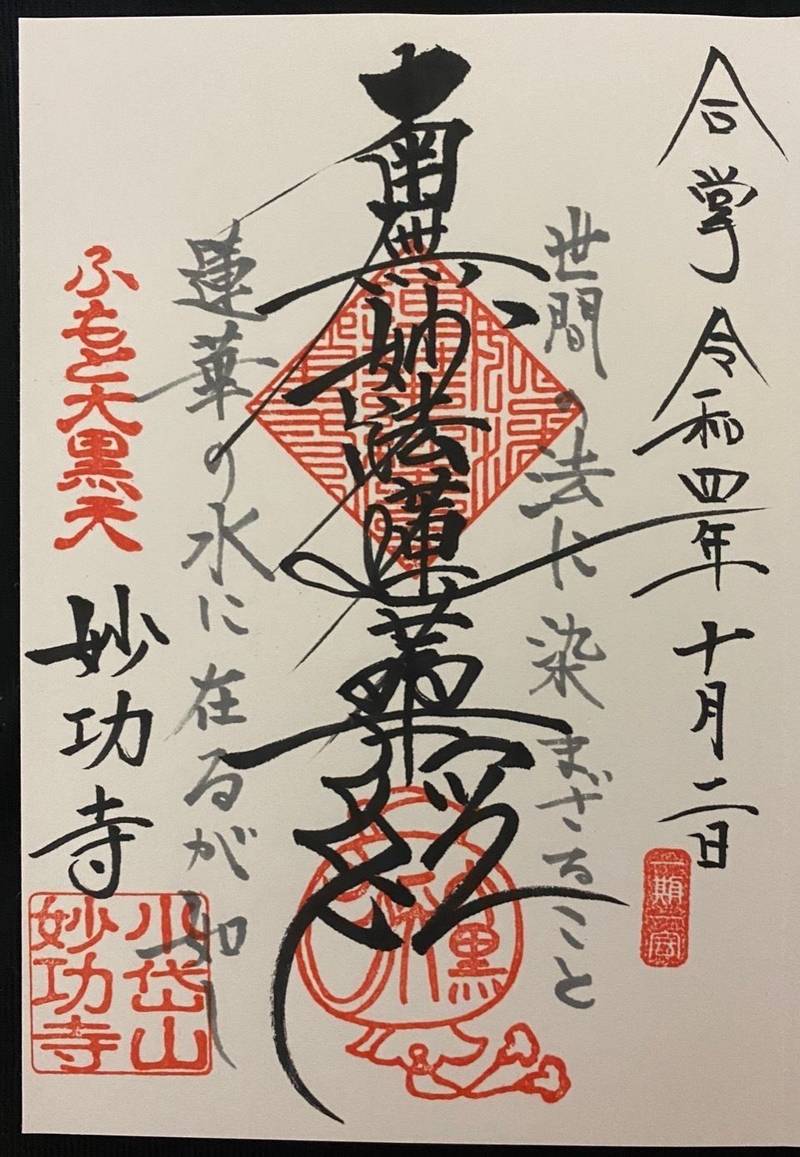 合掌 令和四年十月二日
一期一会
世間の法に染まざること
南無妙法蓮華経
蓮華の水に在るが如し
ふもと大黒天
妙功寺
小岱山
妙功寺